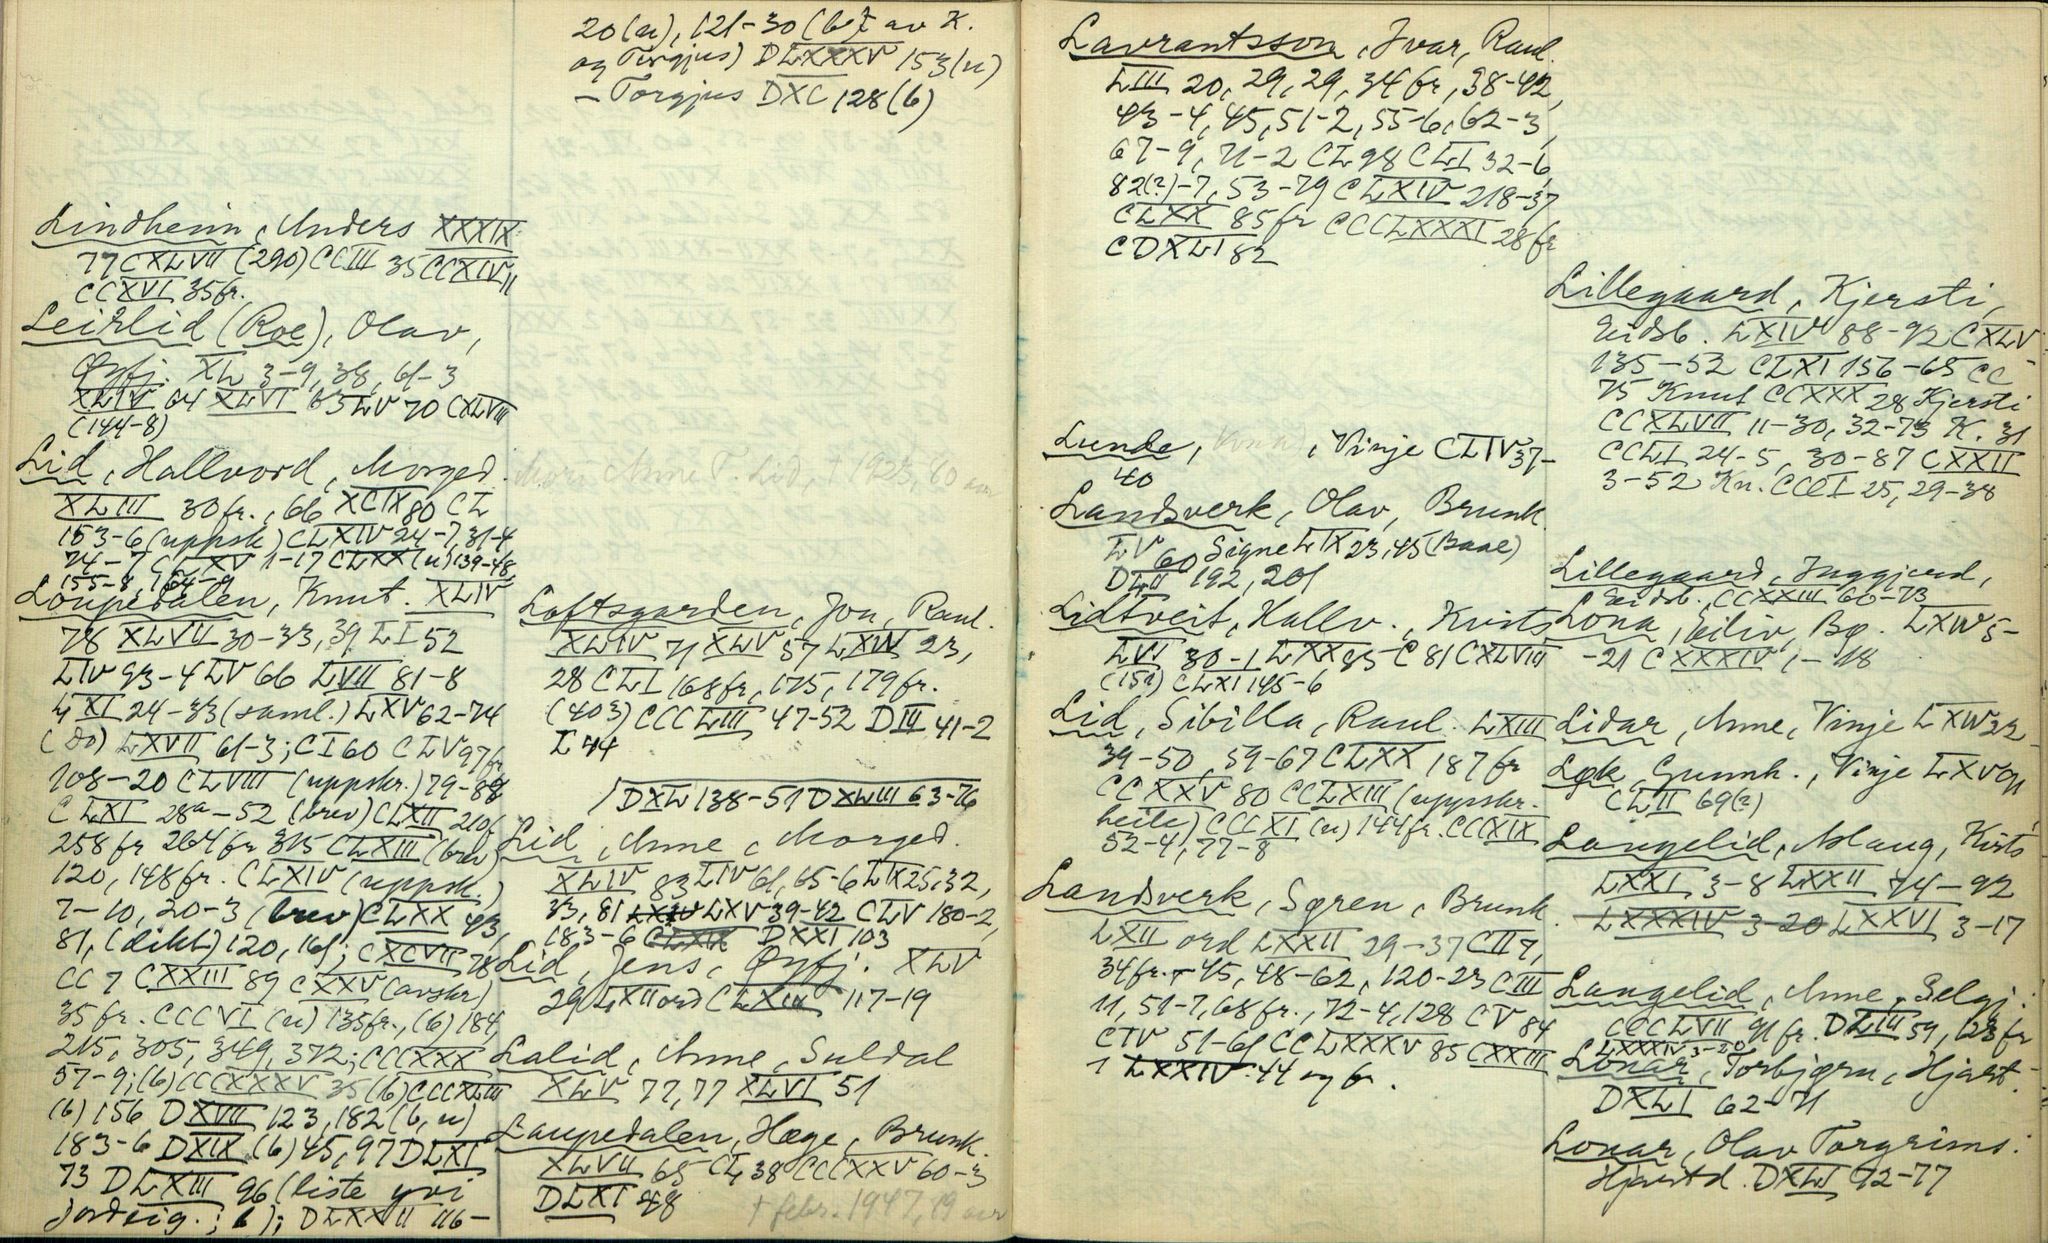 Lindheim, Anders XXXIX
77 CXLVII (290) CCIII 35 CCXIV 11
CCXVI 35 fr.
Leirlid (Roe), Olav,
Øyfj. XL 3-9, 38, 61-3
XLIV 64 XLVI 63 LV 70 CXLVIII
(144-8)
Lid, Hallvord, Morged.
XLIII 30 fr., 66 XCIX 80 CL
153-6 (uppsk.) CLXIV 24-7, 31-4
74-7 CLXV 1-17 CLXX (u) 139-48,
155-8, 164-9
Loupedalen, Knut. XLIV
78 XLVII 30-33, 39 LI 52
LIV 93-4 LV 66 LVII 81-8
LXI 24-33 (saml.) LXV 62-74
(do) LXVII 61-3; CI 60 CLV 97 fr
108-20 CLVIII (uppskr.) 79-88
CLXI 28a-52 (brev) CLXII 210 f
258 fr 264 fr 315 CLXIII (brev)
120, 148 fr. CLXIV (uppsk.)
7-10, 20-3 (brev) CLXX 43,
81, (dikt) 120, 161; CXCVII 78
CC 7 CXXIII 89 CXXV (avskr)
35 fr. CCCVI (u) 135 fr., (b) 184,
215, 305, 349, 372; CCCXXX
57-9; (b) CCCXXXV 35 (b) CCCXLIII
(b) 156 DXVII 123, 182 (b, u)
183-6 DXIX (b) 45, 97 DLXI
73 DLXIII 96 (liste yvi
jordeig.; b); DLXXII 116-
20 (u), 121-30 (b) av K.
og Torgjus) DLXXXV 153 (u)
- Torgjus DXC 128 (b)
Mor: Anne P. Lid, † 1923, 60 aar
Loftsgarden, Jon, Raul.
XLIV 71 XLV 57 LXIV 23,
28 CLI 168 fr, 175, 179 fr.
(403) CCCLIII 47-52 DIII 41-2
L 44
DXL 138-51 DXLIII 63-76
Lid, Anne, Morged.
XLIV 83 LIV 61, 65-6 LIX 25, 32,
33, 81 LXIV LXV 39-42 CLV 180-2,
183-6 CLXIX DXXI 103
Lid, Jens, Øyfj. XLV
29 LXII ord CLXIII 117-19
Lalid, Anne, Suldal
XLV 77, 77 XLVI 51
Laupedalen, Hæge, Brunk.
XLVII 65 CL 38 CCCXXV 60-3
DLXI 48
† febr. 1947, 79 aar
Lavrantsson, Ivar, Raul.
LIII 20, 29, 29, 34 fr, 38-42,
43-4, 45, 51-2, 55-6, 62-3,
67-9, 71-2 CL 98 CLI 32-6,
82(?)-7, 53-79 CLXIV 218-37
CLXX 85 fr CCCLXXXI 28 fr
CDXLI 82
Lunde, , Vinje CLIV 37-
40
Landsverk, Olav, Brunk.
LV 60 Signe LIX 23, 45 (Baae)
DLII 192, 201
Lidtveit, Hallv., Kvits
LVI 30-1 LXX 85 C 81 CXLVIII
(151) CLXI 145-6
Lid, Sibilla, Raul. LXIII
39-50, 59-67 CLXX 187 fr
CCXXV 80 CCLXIII (uppskr.
heile) CCCXI (u) 144 fr. CCCXIX
52-4, 77-8
Landsverk, Søren, Brunk.
LXII ord LXXII 29-37 CII 7,
34 fr.-45, 48-62, 120-23 CIII
11, 51-7, 68 fr., 72-4, 128 CV 84
CIV 51-61 CCLXXXV 85 CXXIII
1 LXXIV 44 og fr.
Lillegaard, Kjersti,
Eidsb. LXIV 88-92 CXLV
135-52 CLXI 156-65 CC
75 Knut CCXXX 28 Kjersti
CCXLVII 11-30, 32-73 K. 31
CCLI 24-5, 30-87 CXXII
3-52 Kn. CCCI 25, 29-38
Lillegaard, Inggjerd,
Eidsb. CCXXIII 60-73
Lona, Eiliv, Bø. LXIV 5-
-21 CXXXIV 1-18
Lidar, Anne, Vinje LXIV 32-
Løk, Gunnh., Vinje LXV 91
CLII 69(?)
Langelid, Aslaug, Kvits
LXXI 3-8 LXXII 74-92
LXXXIV 3-20 LXXVI 3-17
Langelid, Anne, Selgj.
CCCLVII 91 fr. DLIII 59, 123 fr
LXXXIV 3-20
Lonar, Torbjørn, Hjart.
DXLI 62-71
Lonar, Olav Torgrims:
Hjartd. DXLI 72-77